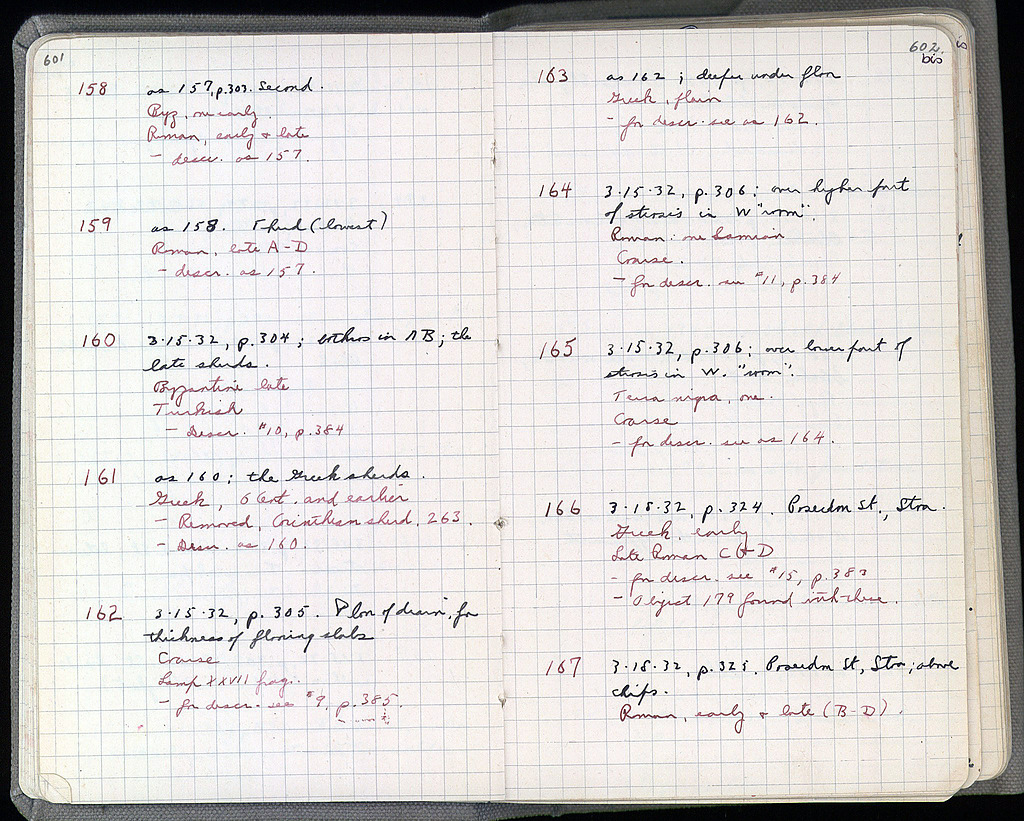 601
158 as 157, p.303. Second.
Byz, one early.
Roman, early & late
- descr. as 157.
159 as 158. Third (lowest)
Roman, late A-D
- descr. as 157.
160 3·15·32, p.304; bothros in AB; the
late sherds.
Byzantine late
Turkish
- Descr. #10, p.384
161 as 160; the Greek sherds.
Greek, 6 Cent. and earlier
- Removed, Corinthian sherd, 263.
- Descr. as 160.
162 3·15·32, p.305. of drain, for
thickness of flooring slabs
Coarse
Lamp XXVII frag.
- for descr. see #9, p.385.
602
bis
163 as 162; deeper under floor
Greek, plain
- for descr. see as 162.
164 3·15·32, p.306; over higher part
of stosis in W "room".
Roman: one Samian
Coarse.
- for descr. see #11, p.384
165 3·15·32, p.306; over lower part of
stosis in W. "room".
Terra nigra, one.
Coarse
- for descr. see as 164.
166 3·18·32, p.324. Poseidon St., Stoa.
Greek, early
Late Roman C & D
- for descr. see #15, p.383
- Object 179 found with these.
167 3·18·32, p.325. Poseidon St, Stoa; above
chips.
Roman, early & late (B-D).